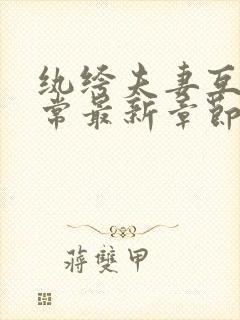 纨绔夫妻互
常最新章节
蒋双甲